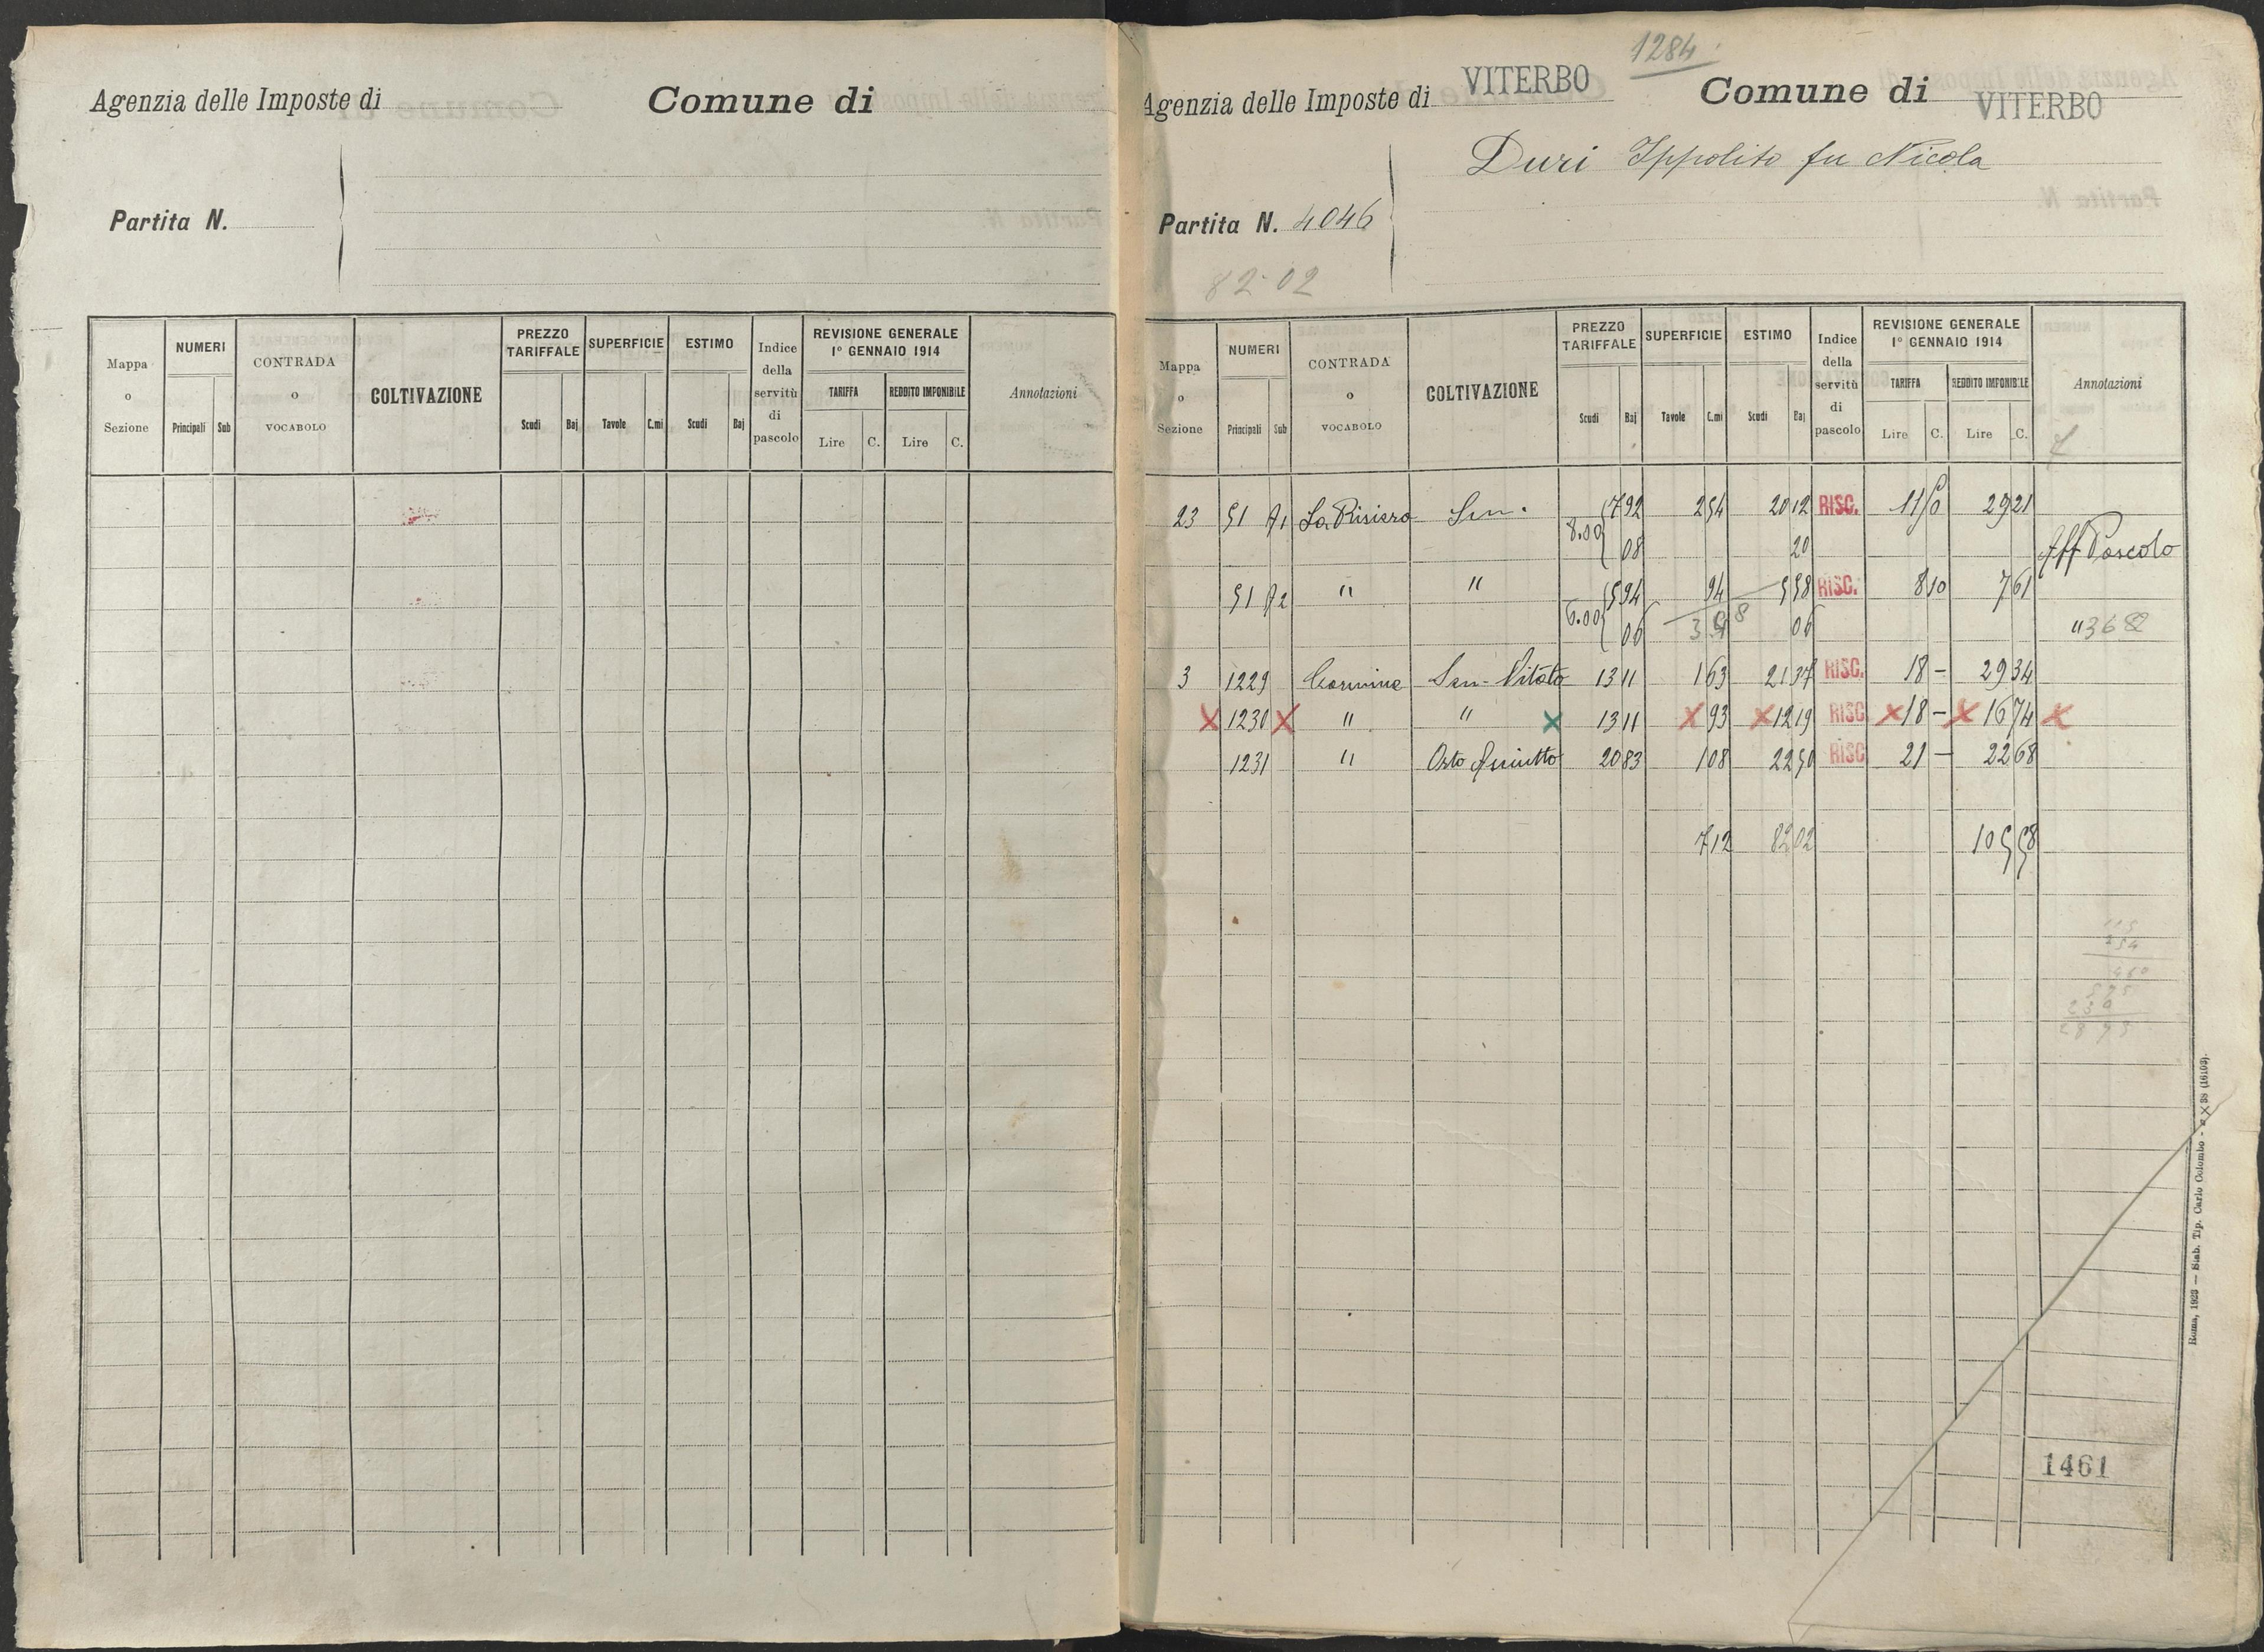 Agenzia delle Imposte di Comune di
Partita N.
Mappa o Sezione NUMERI Principali Sub CONTRADA o VOCABOLO COLTIVAZIONE PREZZO TARIFFALE Scudi Baj SUPERFICIE Tavole C.mi ESTIMO Scudi Baj Indice della servitù di pascolo REVISIONE GENERALE 1° GENNAIO 1914 TARIFFA Lire C. REDDITO IMPONIBILE Lire C. Annotazioni
1284
Agenzia delle Imposte di VITERBO Comune di VITERBO
Duri Ippolito fu Nicola
Partita N. 4046
82.02
Mappa o Sezione NUMERI Principali Sub CONTRADA o VOCABOLO COLTIVAZIONE PREZZO TARIFFALE Scudi Baj SUPERFICIE Tavole C.mi ESTIMO Scudi Baj Indice della servitù di pascolo REVISIONE GENERALE 1° GENNAIO 1914 TARIFFA Lire C. REDDITO IMPONIBILE Lire C. Annotazioni
23 51 A1 La Risiera Sem. 8.00 7 92 2 54 20 12 RISC. 11 50 29 21
08 20 Aff Pascolo
51 A2 " " 6.00 5 94 94 5 58 RISC. 8 10 7 61
06 3 48 06 " 368
3 1229 Carmine Sem-Vitato 13 11 1 63 21 37 RISC. 18 - 29 34
X 1230 X " " X 13 11 X 93 X 12 19 RISC X 18 - X 16 74 X
1231 " Orto Asciutto 20 83 1 08 22 50 RISC 21 - 22 68
7 12 82 02 105 58
115
254
460
575
230
1461
Roma, 1923 — Stab. Tip. Carlo Colombo